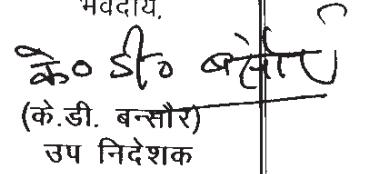 भवदीय,
के० डी० बन्सौर
(के.डी. बन्सौर)
उप निदेशक